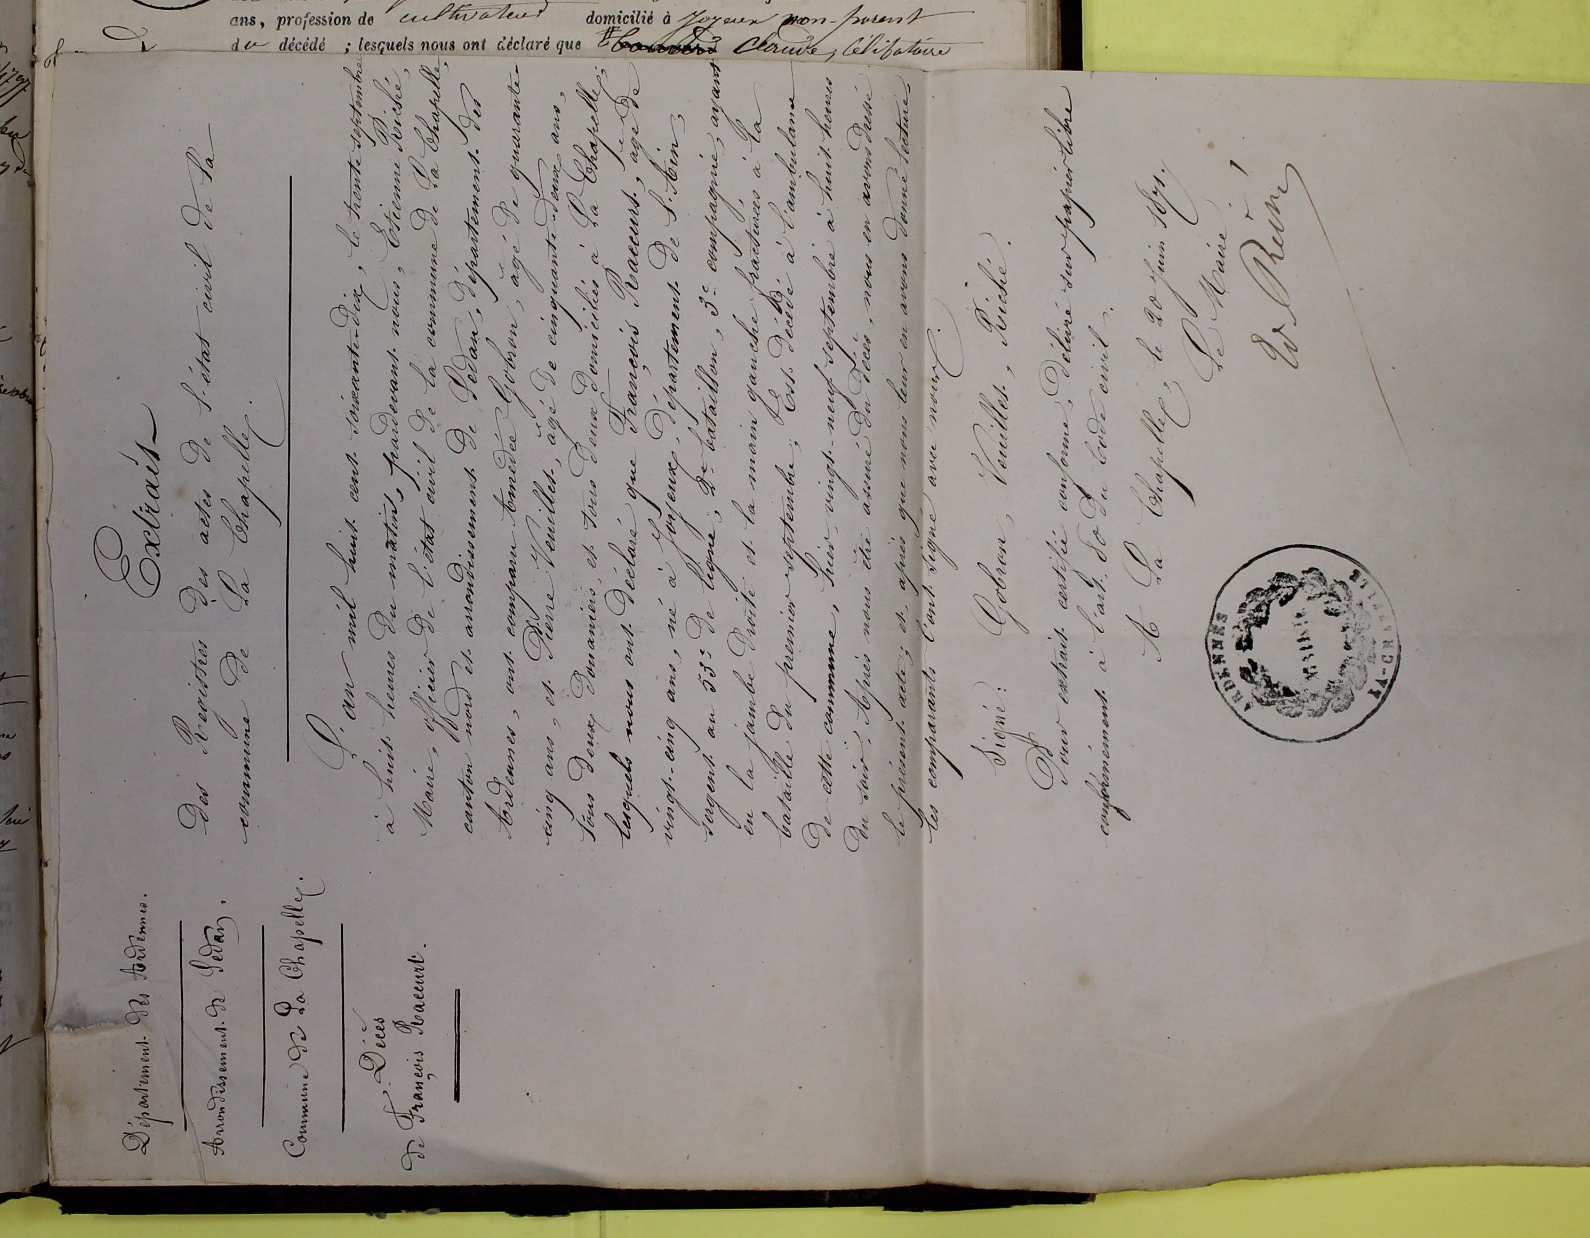 ans, profession de cultivateur domicilié à Joyeux non-parent
du décédé ; lesquels nous ont déclaré que Claude, célibataire
Département des Ardennes.
Arrondissement de Sedan.
Commune de La Chapelle.
Décès
de François Raccurt.
Extrait
Des Registres des actes de l'état civil de la
commune de La Chapelle.
L'an mil huit cent soixante-dix, le trente septembre
à huit heures du matin, pardevant nous, Etienne Riché,
Maire, officier de l'état civil de la commune de La Chapelle,
canton nord et arrondissement de Sedan, département des
Ardennes, ont comparu Amédée Gobron, âgé de quarante
cinq ans, et Pierre Veuillet, âgé de cinquante-deux ans,
tous deux douaniers, et tous deux domiciliés à La Chapelle;
lesquels nous ont déclaré que François Raccurt, âgé de
vingt-cinq ans, né à Joyeux, département de l'Ain,
sergent au 53e de ligne, 2e bataillon, 3e compagnie, ayant
eu la jambe droite et la main gauche fracturées à la
bataille du premier septembre, est décédé à l'ambulance
de cette commune, hier vingt-neuf septembre à huit heures
du soir. Après nous être assuré du décès, nous en avons dressé
le présent acte; et après que nous leur en avons donné lecture
les comparants l'ont signé avec nous.
Signé: Gobron, Veuillet, Riché.
Pour extrait certifié conforme, délivré sur papier libre
conformément à l'art. 80 du Code civil.
A La Chapelle, le 20 Juin 1871.
Le Maire,
ARDENNES
MAIRIE
LA-CHAPELLE